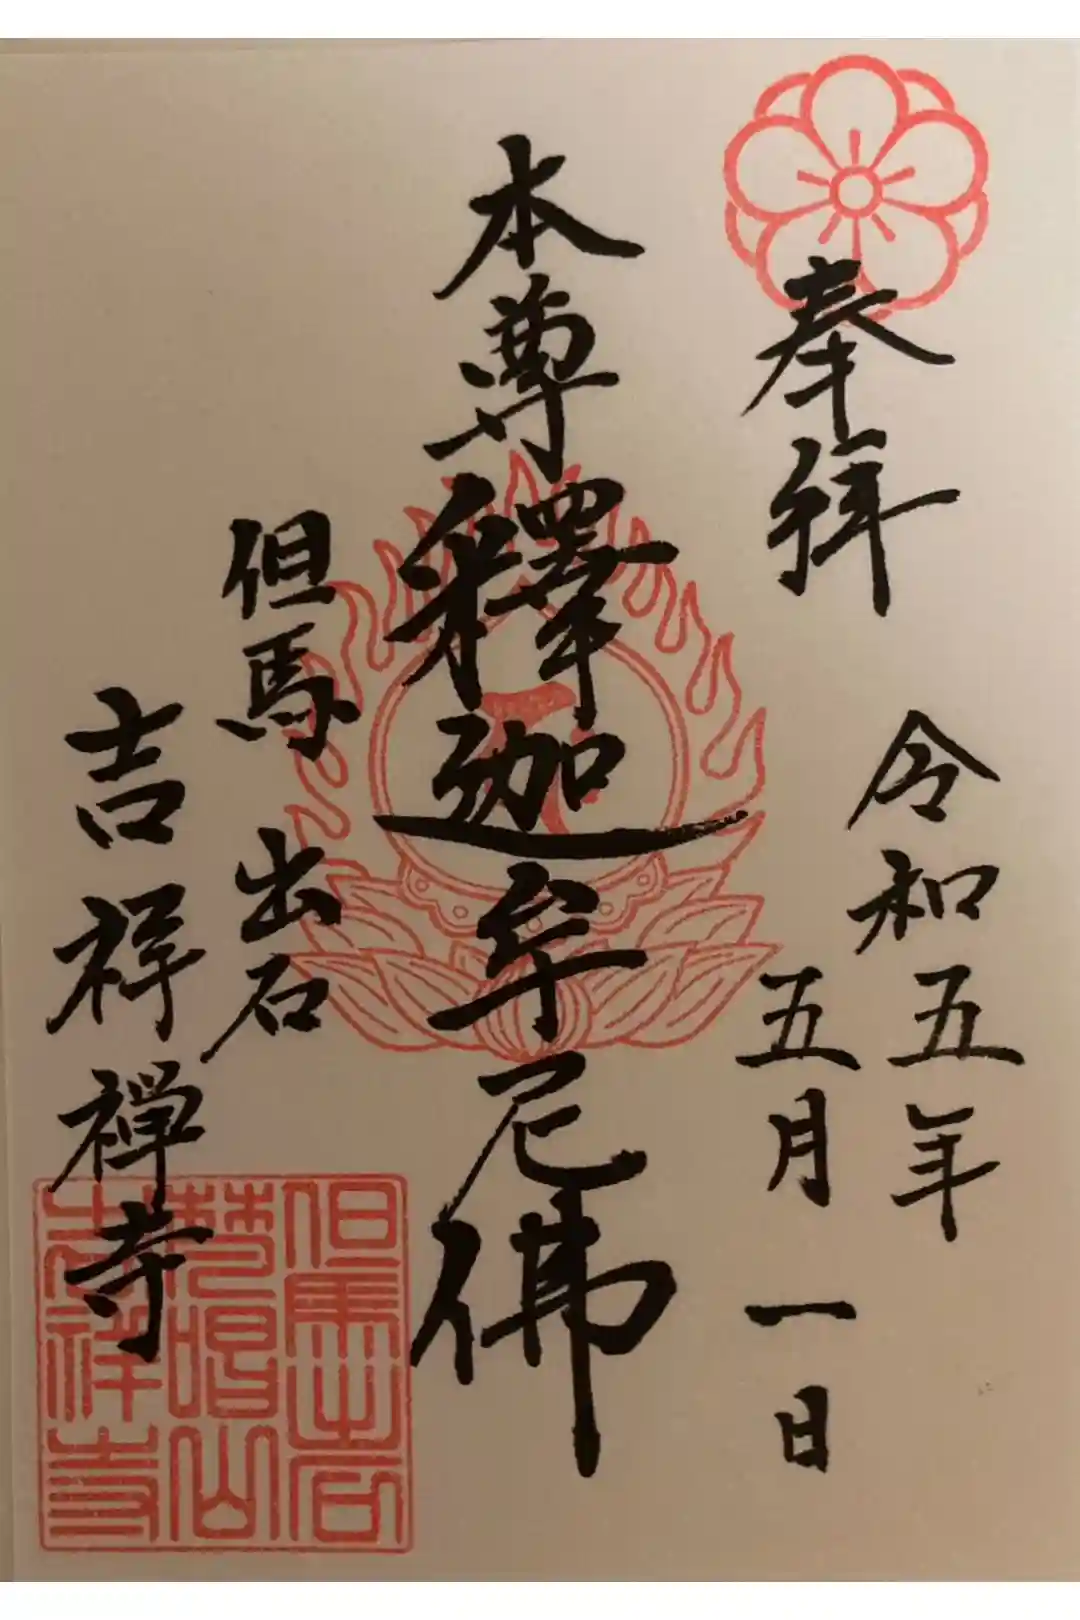 奉拝
令和五年
五月一日
本尊釋迦牟尼佛
但馬 出石
吉祥禅寺
但馬出石
吉祥寺